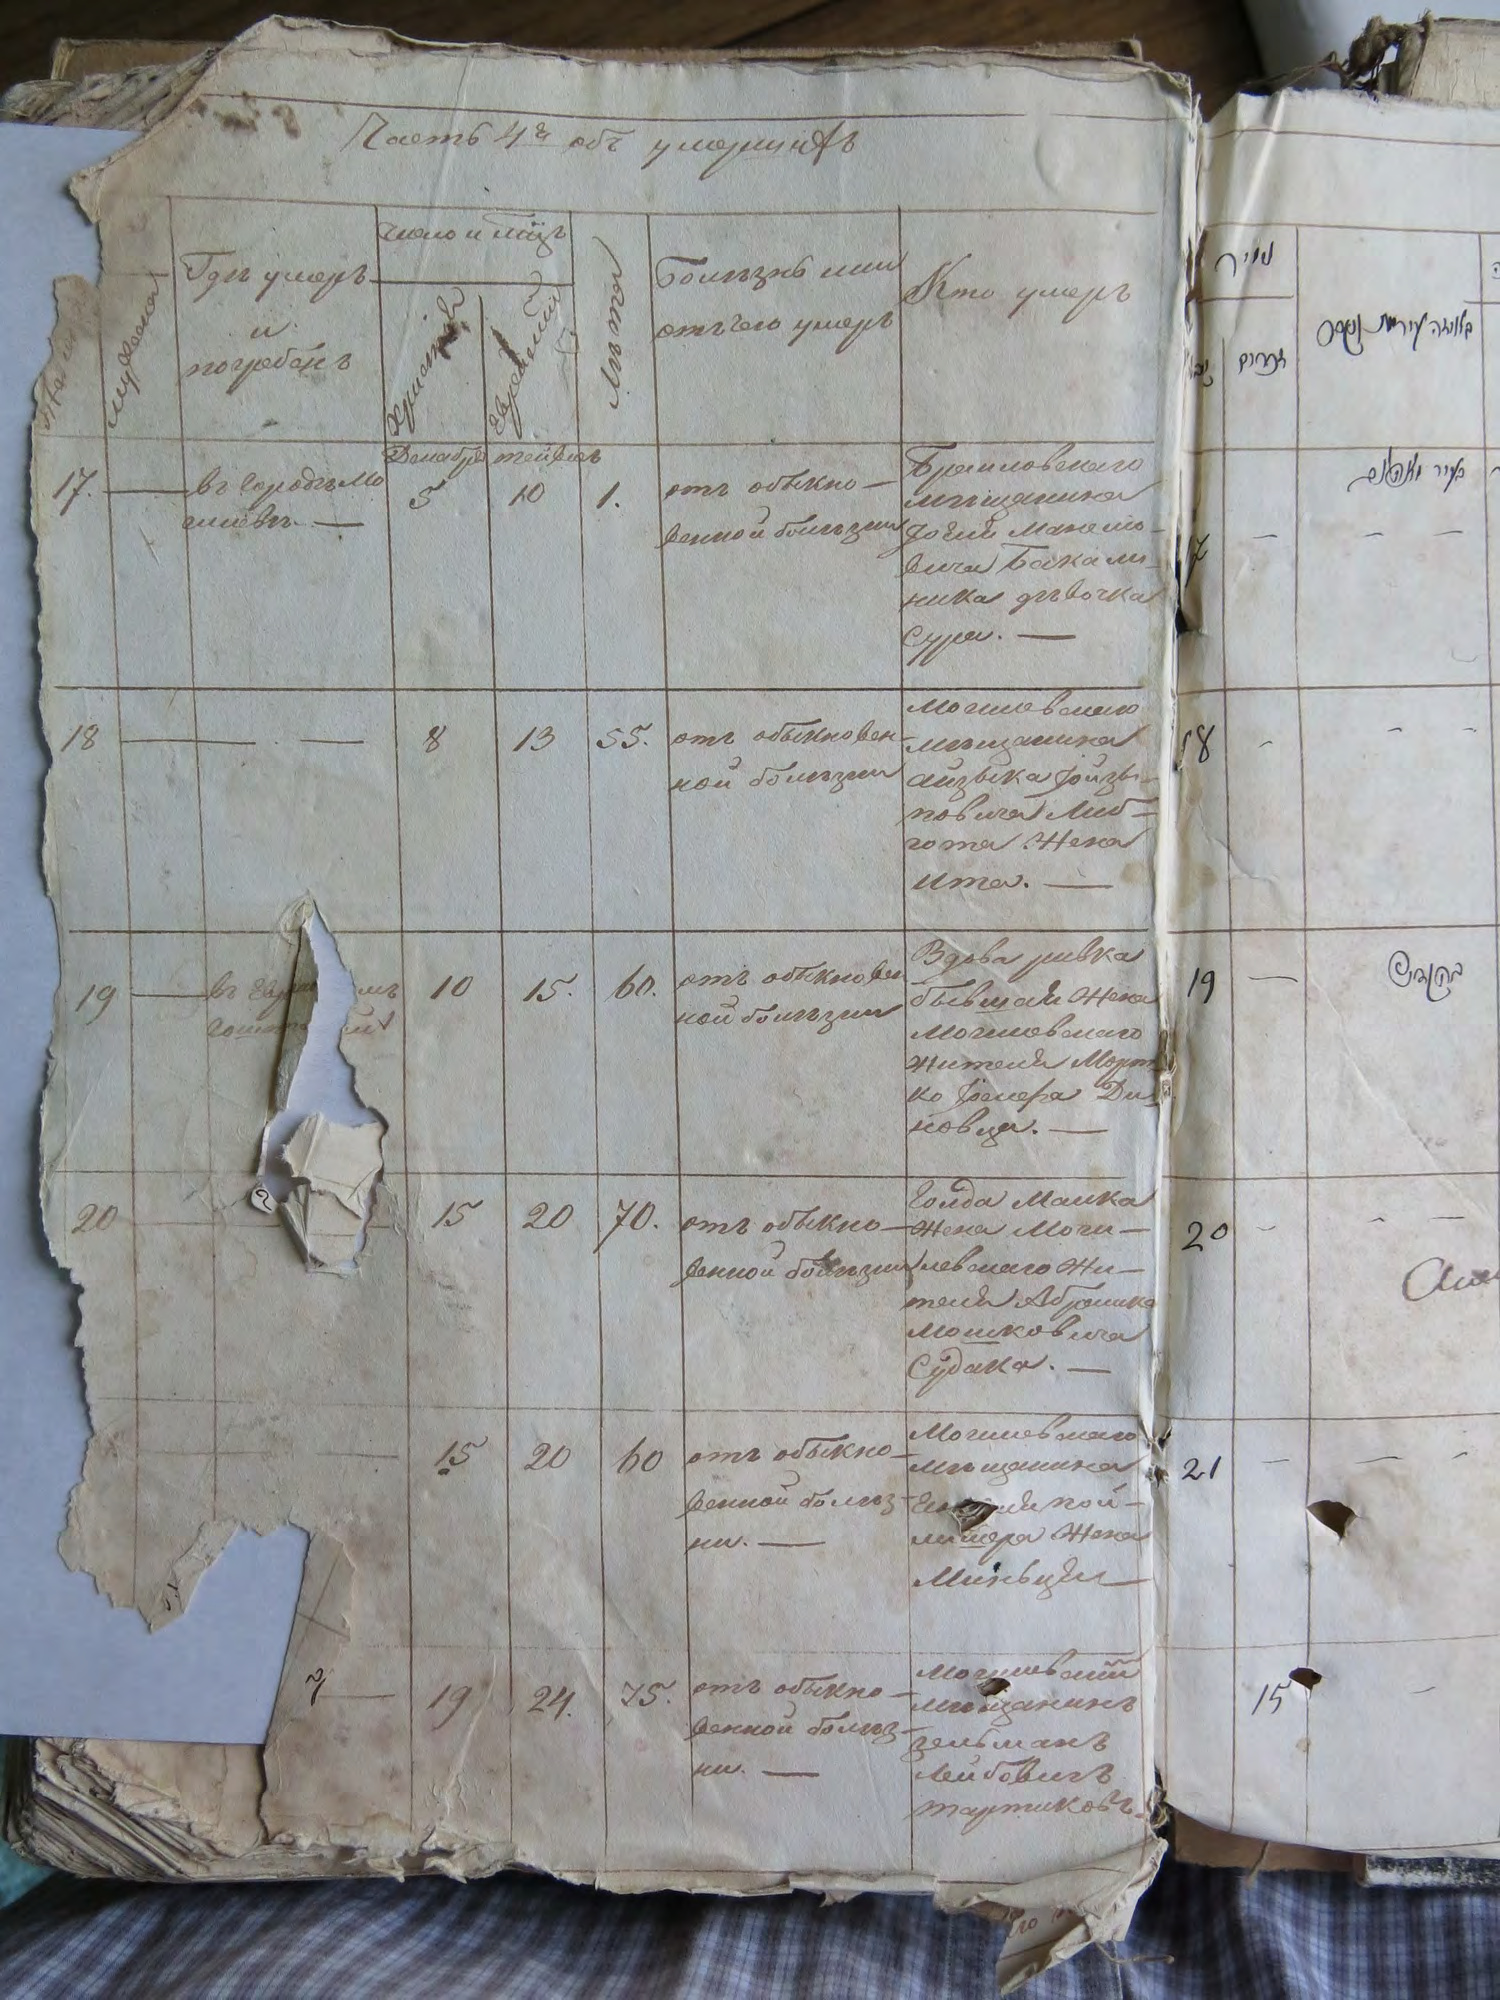 Часть 4я объ умершихъ
Число и м̃цъ
Гдѣ умеръ
и
погребенъ
мужеска
Христіанскій
Еврейскій
Лѣта
Болѣзнь или
отъ чего умеръ
Кто умеръ
Декабрь тейвесъ
17. — въ городѣ Мо
гилевѣ. —
5 10 1.
отъ обыкно—
венной болѣзни
Браиловскаго
мѣщанина
вича Бакали
ника дѣвочка
Сура. —
18 — — 8 13 55.
отъ обыкновен
ной болѣзни
Могилевскаго
мѣщанина
Айзыка
повича Либ—
гота жена
Ита. —
19 — въ
10 15. 60.
отъ обыкновен
ной болѣзни
Вдова ривка
бывшая жена
Могилевскаго
жителя Морт
ко
новца. —
20 15 20 70.
отъ обыкно—
венной болѣзни
Голда Малка
жена Моги—
левскаго жи—
теля Абрамка
Мошковича
Судака. —
15 20 60
отъ обыкно—
венной болѣз—
ни. —
Могилевскаго
мѣщанина
жена
19 24. 75.
отъ обыкно—
венной болѣз—
ни. —
Могилевскій
мѣщанинъ
зельманъ
Лейбовичъ
тартиковъ.
זכרים
17
18
19
20
21
15